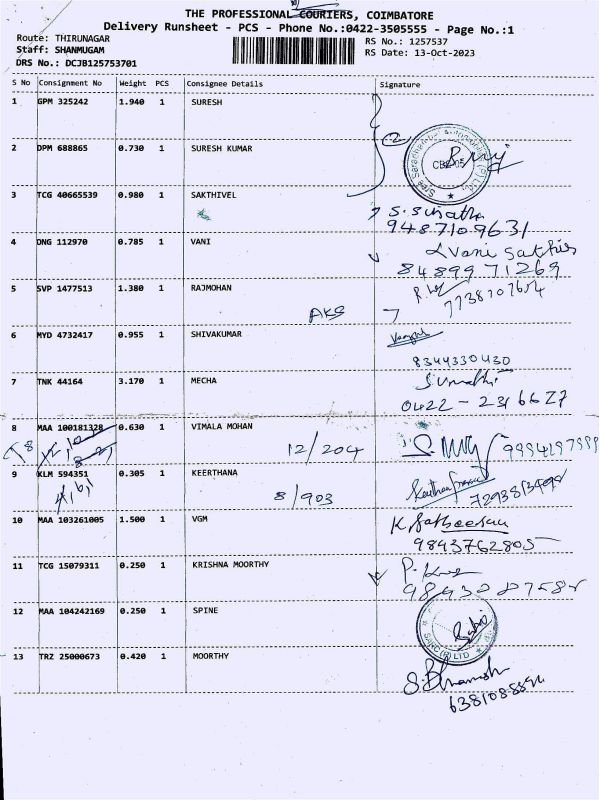 THE PROFESSIONAL COURIERS, COIMBATORE
Delivery Runsheet - PCS - Phone No.:0422-3505555 - Page No.:1
Route: THIRUNAGAR
RS No.: 1257537
Staff: SHANMUGAM
RS Date: 13-Oct-2023
DRS No.: DCJB125753701
S No Consignment No Weight PCS Consignee Details Signature
1 GPM 325242 1.940 1 SURESH
2 DPM 688865 0.730 1 SURESH KUMAR
3 TCG 40665539 0.980 1 SAKTHIVEL
9487109631
4 DNG 112970 0.785 1 VANI
8489971269
5 SVP 1477513 1.380 1 RAJMOHAN
AKS
6 MYD 4732417 0.955 1 SHIVAKUMAR
8344330430
7 TNK 44164 3.170 1 MECHA
Sumathi
0422 - 2316627
8 MAA 100181328 0.630 1 VIMALA MOHAN
12/204
9 KLM 594351 0.305 1 KEERTHANA
8/903
10 MAA 103261005 1.500 1 VGM
9843762805
11 TCG 15079311 0.250 1 KRISHNA MOORTHY
12 MAA 104242169 0.250 1 SPINE
13 TRZ 25000673 0.420 1 MOORTHY